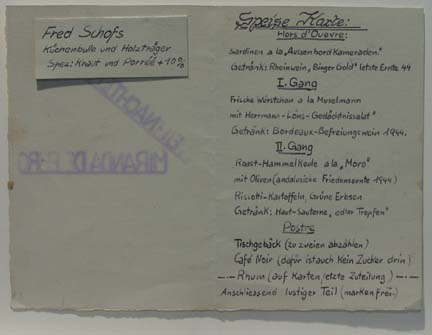 Fred Schofs
Küchenbulle und Holzträger
Spez: Kraut und Porrée + 10%
MIRANDA DE EBRO
Speise Karte:
Hors d'Ouevre:
Sardinen a la „Aussenbord Kameraden."
Getränk: Rheinwein, „Binger Gold" letzte Ernte 44
I. Gang
Frische Würstchen a la Muselmann
mit Herrmann-Löns-Gedächtnissalat"
Getränk: Bordeaux-Befreiungswein 1944.
II. Gang
Roast-Hammelkeule a la „Moro"
mit Oliven (andalusiche Friedensernte 1944)
Rissotti-Kartoffeln, Grüne Erbsen
Getränk: Haut-Sauterne, „edler Tropfen"
Postre
Tischgebäck (zu zweien abzählen)
Café Noir (dafür ist auch Kein Zucker drin)
Rhum (auf Karten, letzte Zuteilung)
Anschliessend lustiger Teil (markenfrei.)